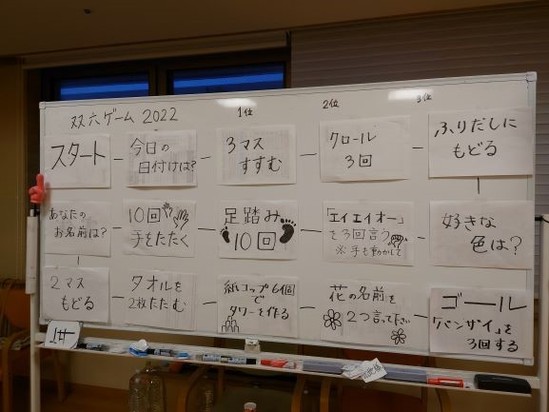 双六ゲーム 2022
1位
2位
3位
スタート
今日の
日付けは?
3マス
すすむ
クロール
3回
ふりだしに
もどる
あなたの
お名前は?
10回
手をたたく
足踏み
10回
「エイエイオー」
を3回言う
※手も動かして
好きな
色は?
2マス
もどる
タオルを
2枚たたむ
紙コップ6個
で
タワーを作る
花の名前を
2つ言って下さい
ゴール
「バンザイ」を
3回する